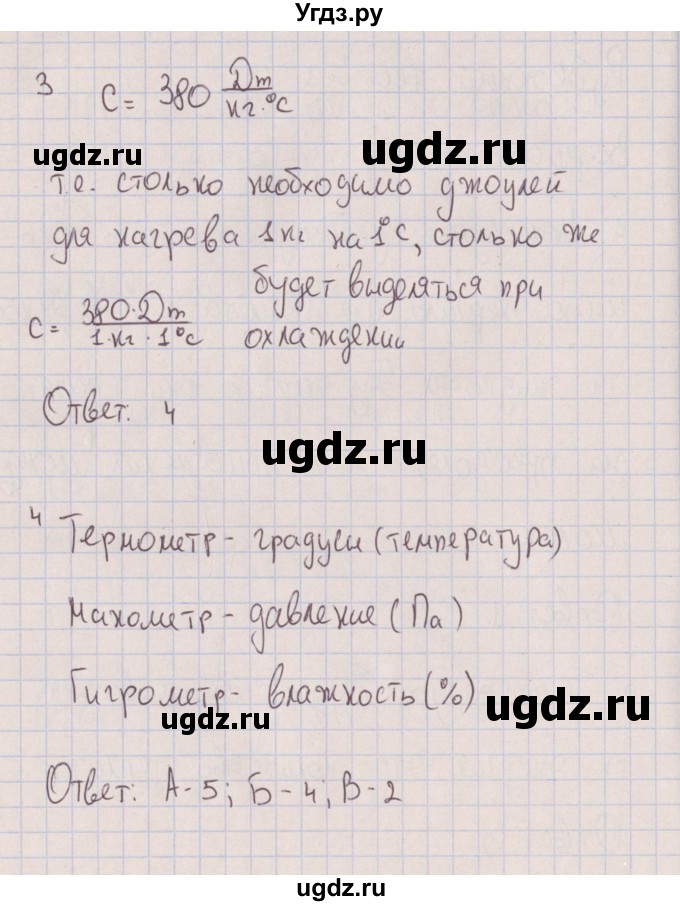 Угдз.ру
3 C = 380 Дж/кг·°C
ugdz.ru ugdz.ru
т.е. столько необходимо джоулей
для нагрева 1 кг на 1°C, столько же
будет выделяться при
C = 380·Дж/1·кг·1°C охлаждении
Ответ: 4
ugdz.ru
4 Термометр - градусы (температура)
Манометр - давление (Па)
Гигрометр - влажность (%)
ugdz.ru ugdz.ru
Ответ: А-5; Б-4; В-2
ugdz.ru